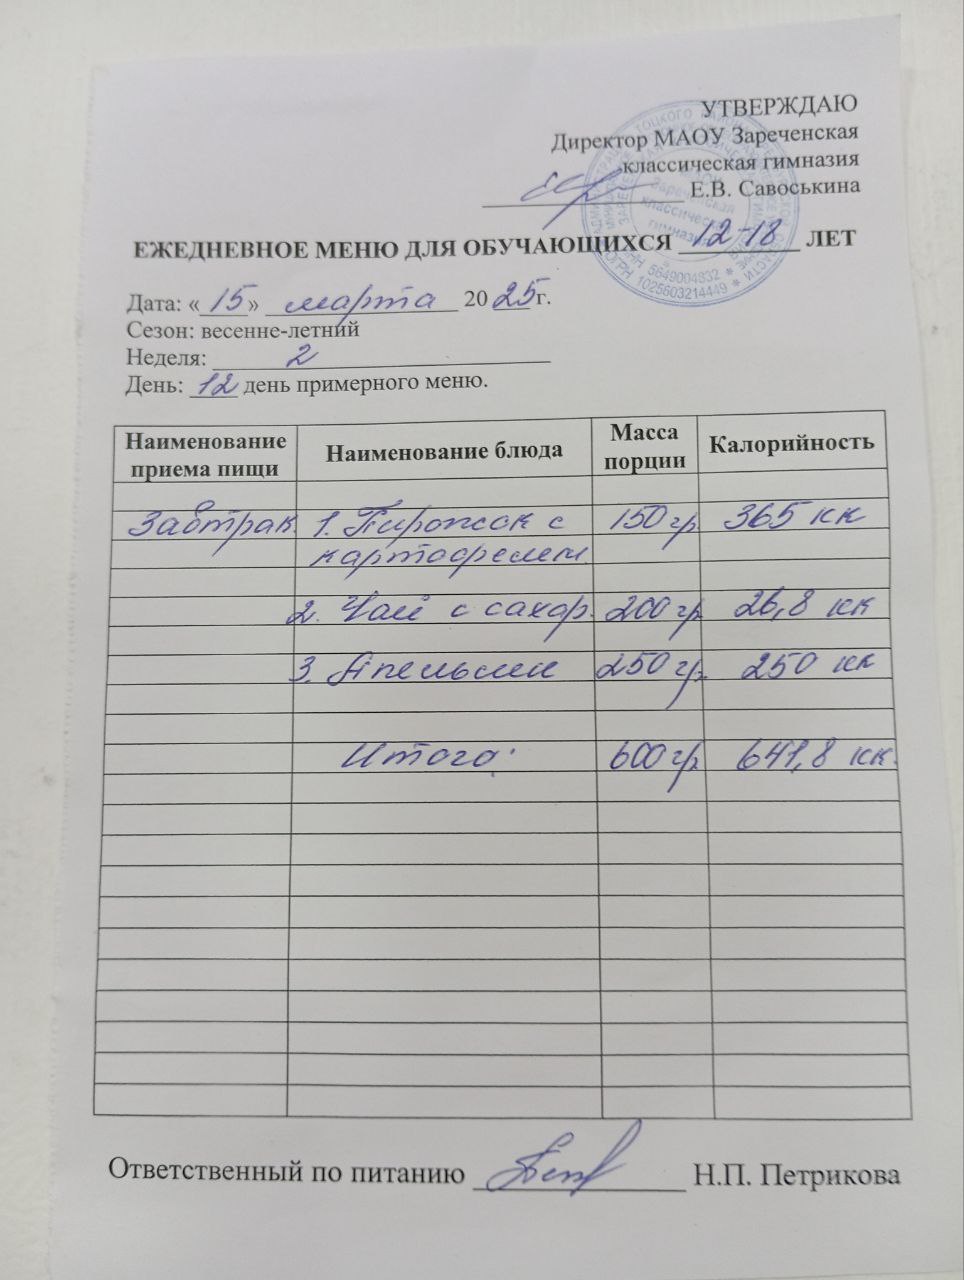 УТВЕРЖДАЮ
Директор МАОУ Зареченская
классическая гимназия
Е.В. Савоськина
ЕЖЕДНЕВНОЕ МЕНЮ ДЛЯ ОБУЧАЮЩИХСЯ 12-18 ЛЕТ
Дата: «15» марта 2025г.
Сезон: весенне-летний
Неделя: 2
День: 12 день примерного меню.
Наименование приема пищи Наименование блюда Масса порции Калорийность
Завтрак 1. Пирожок с 150 гр 365 кк
картофелем
2. Чай с сахар. 200 гр 26,8 кк
3. Апельсин 250 гр. 250 кк
Итого: 600 гр 641,8 кк.
Ответственный по питанию Н.П. Петрикова
ИНН 5649004832 * ОГРН 1025603214449 *
Зареченская
классическая
гимназия